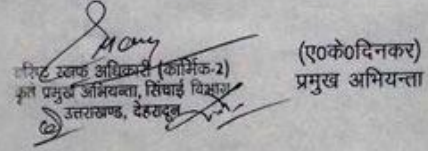 वरिष्ठ स्टाफ अधिकारी (कार्मिक-2)
कृते प्रमुख अभियन्ता, सिंचाई विभाग
उत्तराखण्ड, देहरादून
(ए0के0दिनकर)
प्रमुख अभियन्ता